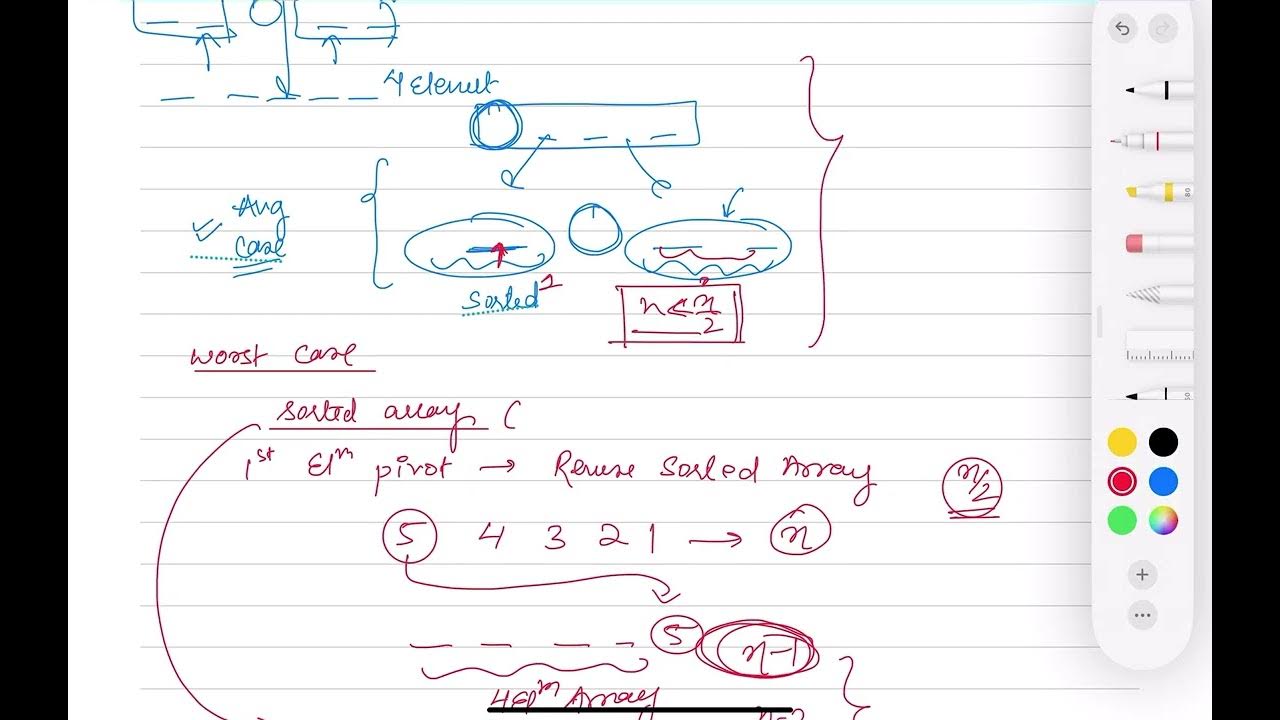 4 Element
Avg
Case
Sorted
1
n < n/2
Worst Case
Sorted array (
1st Elm pivot → Revuse Sorted Array
n/2
5 4 3 2 1 → n
5 n-1
4 Elm Array
n-2